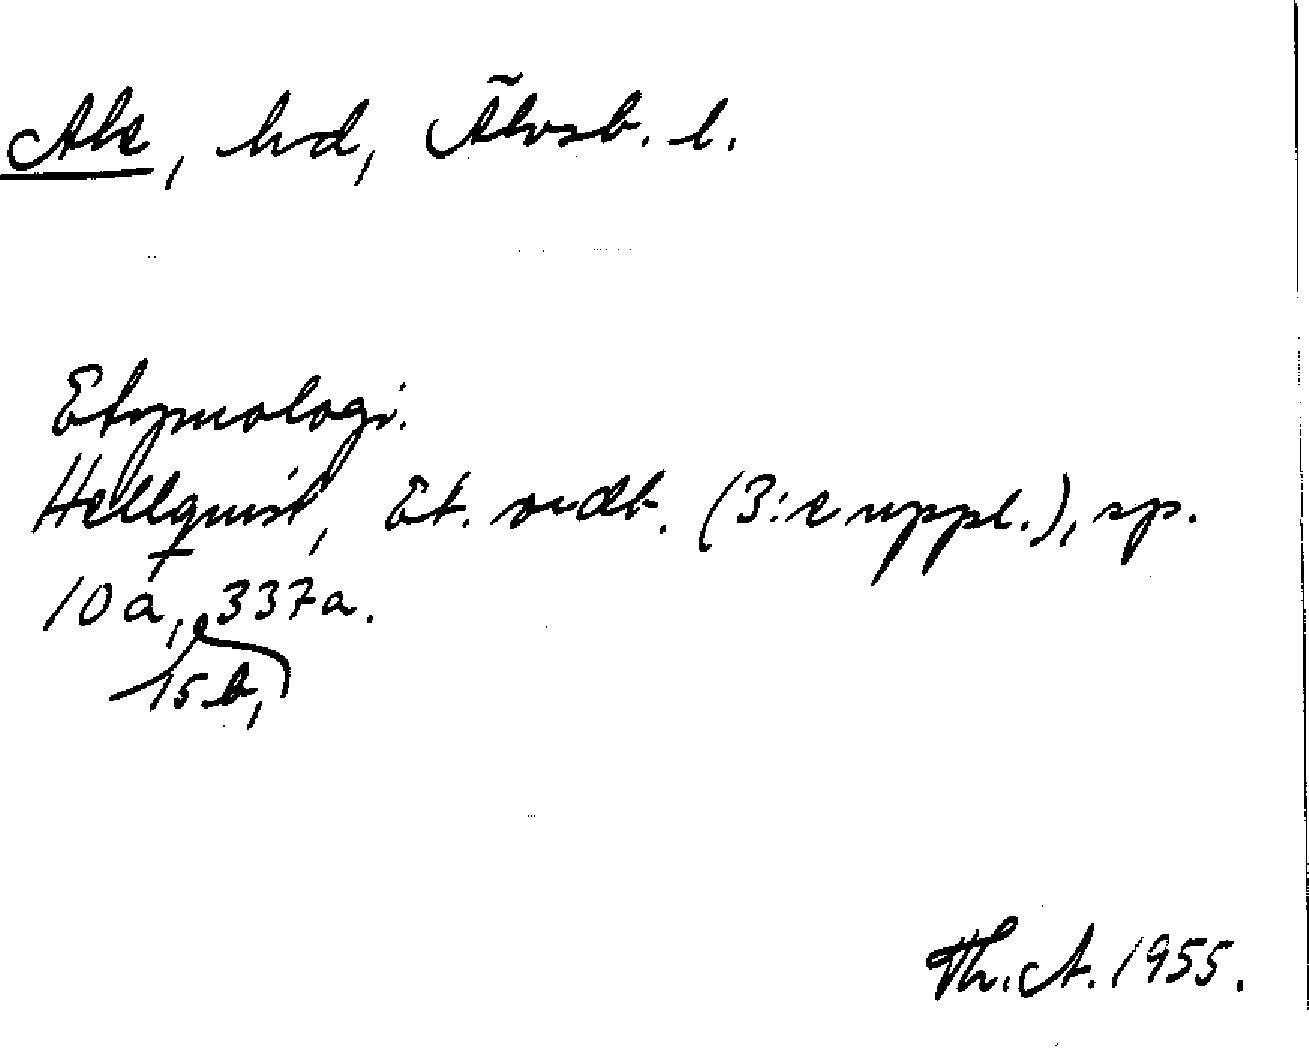 Ale, hd, Älvsb. l.
Etymologi.
Hellquist, Et. ordb. (3:e uppl.), sp.
10 a, 337 a.
15 b,
Th. A. 1955.